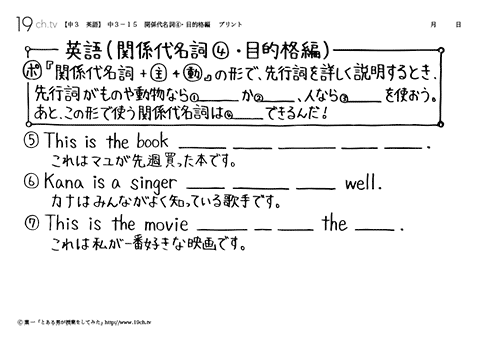 19ch.tv 【中3 英語】 中3-15 関係代名詞④・目的格編 プリント 月 日
英語(関係代名詞④・目的格編)
ポ『関係代名詞+主+動』の形で、先行詞を詳しく説明するとき、
先行詞がものや動物なら①____か②____、人なら③____を使おう。
あと、この形で使う関係代名詞は④____できるんだ!
⑤ This is the book ____ ____ ____ ____ ____.
これはマユが先週買った本です。
⑥ Kana is a singer ____ ____ ____ well.
カナはみんながよく知っている歌手です。
⑦ This is the movie ____ __ ____ the ____.
これは私が一番好きな映画です。
Ⓒ 葉一「とある男が授業をしてみた」http://www.19ch.tv